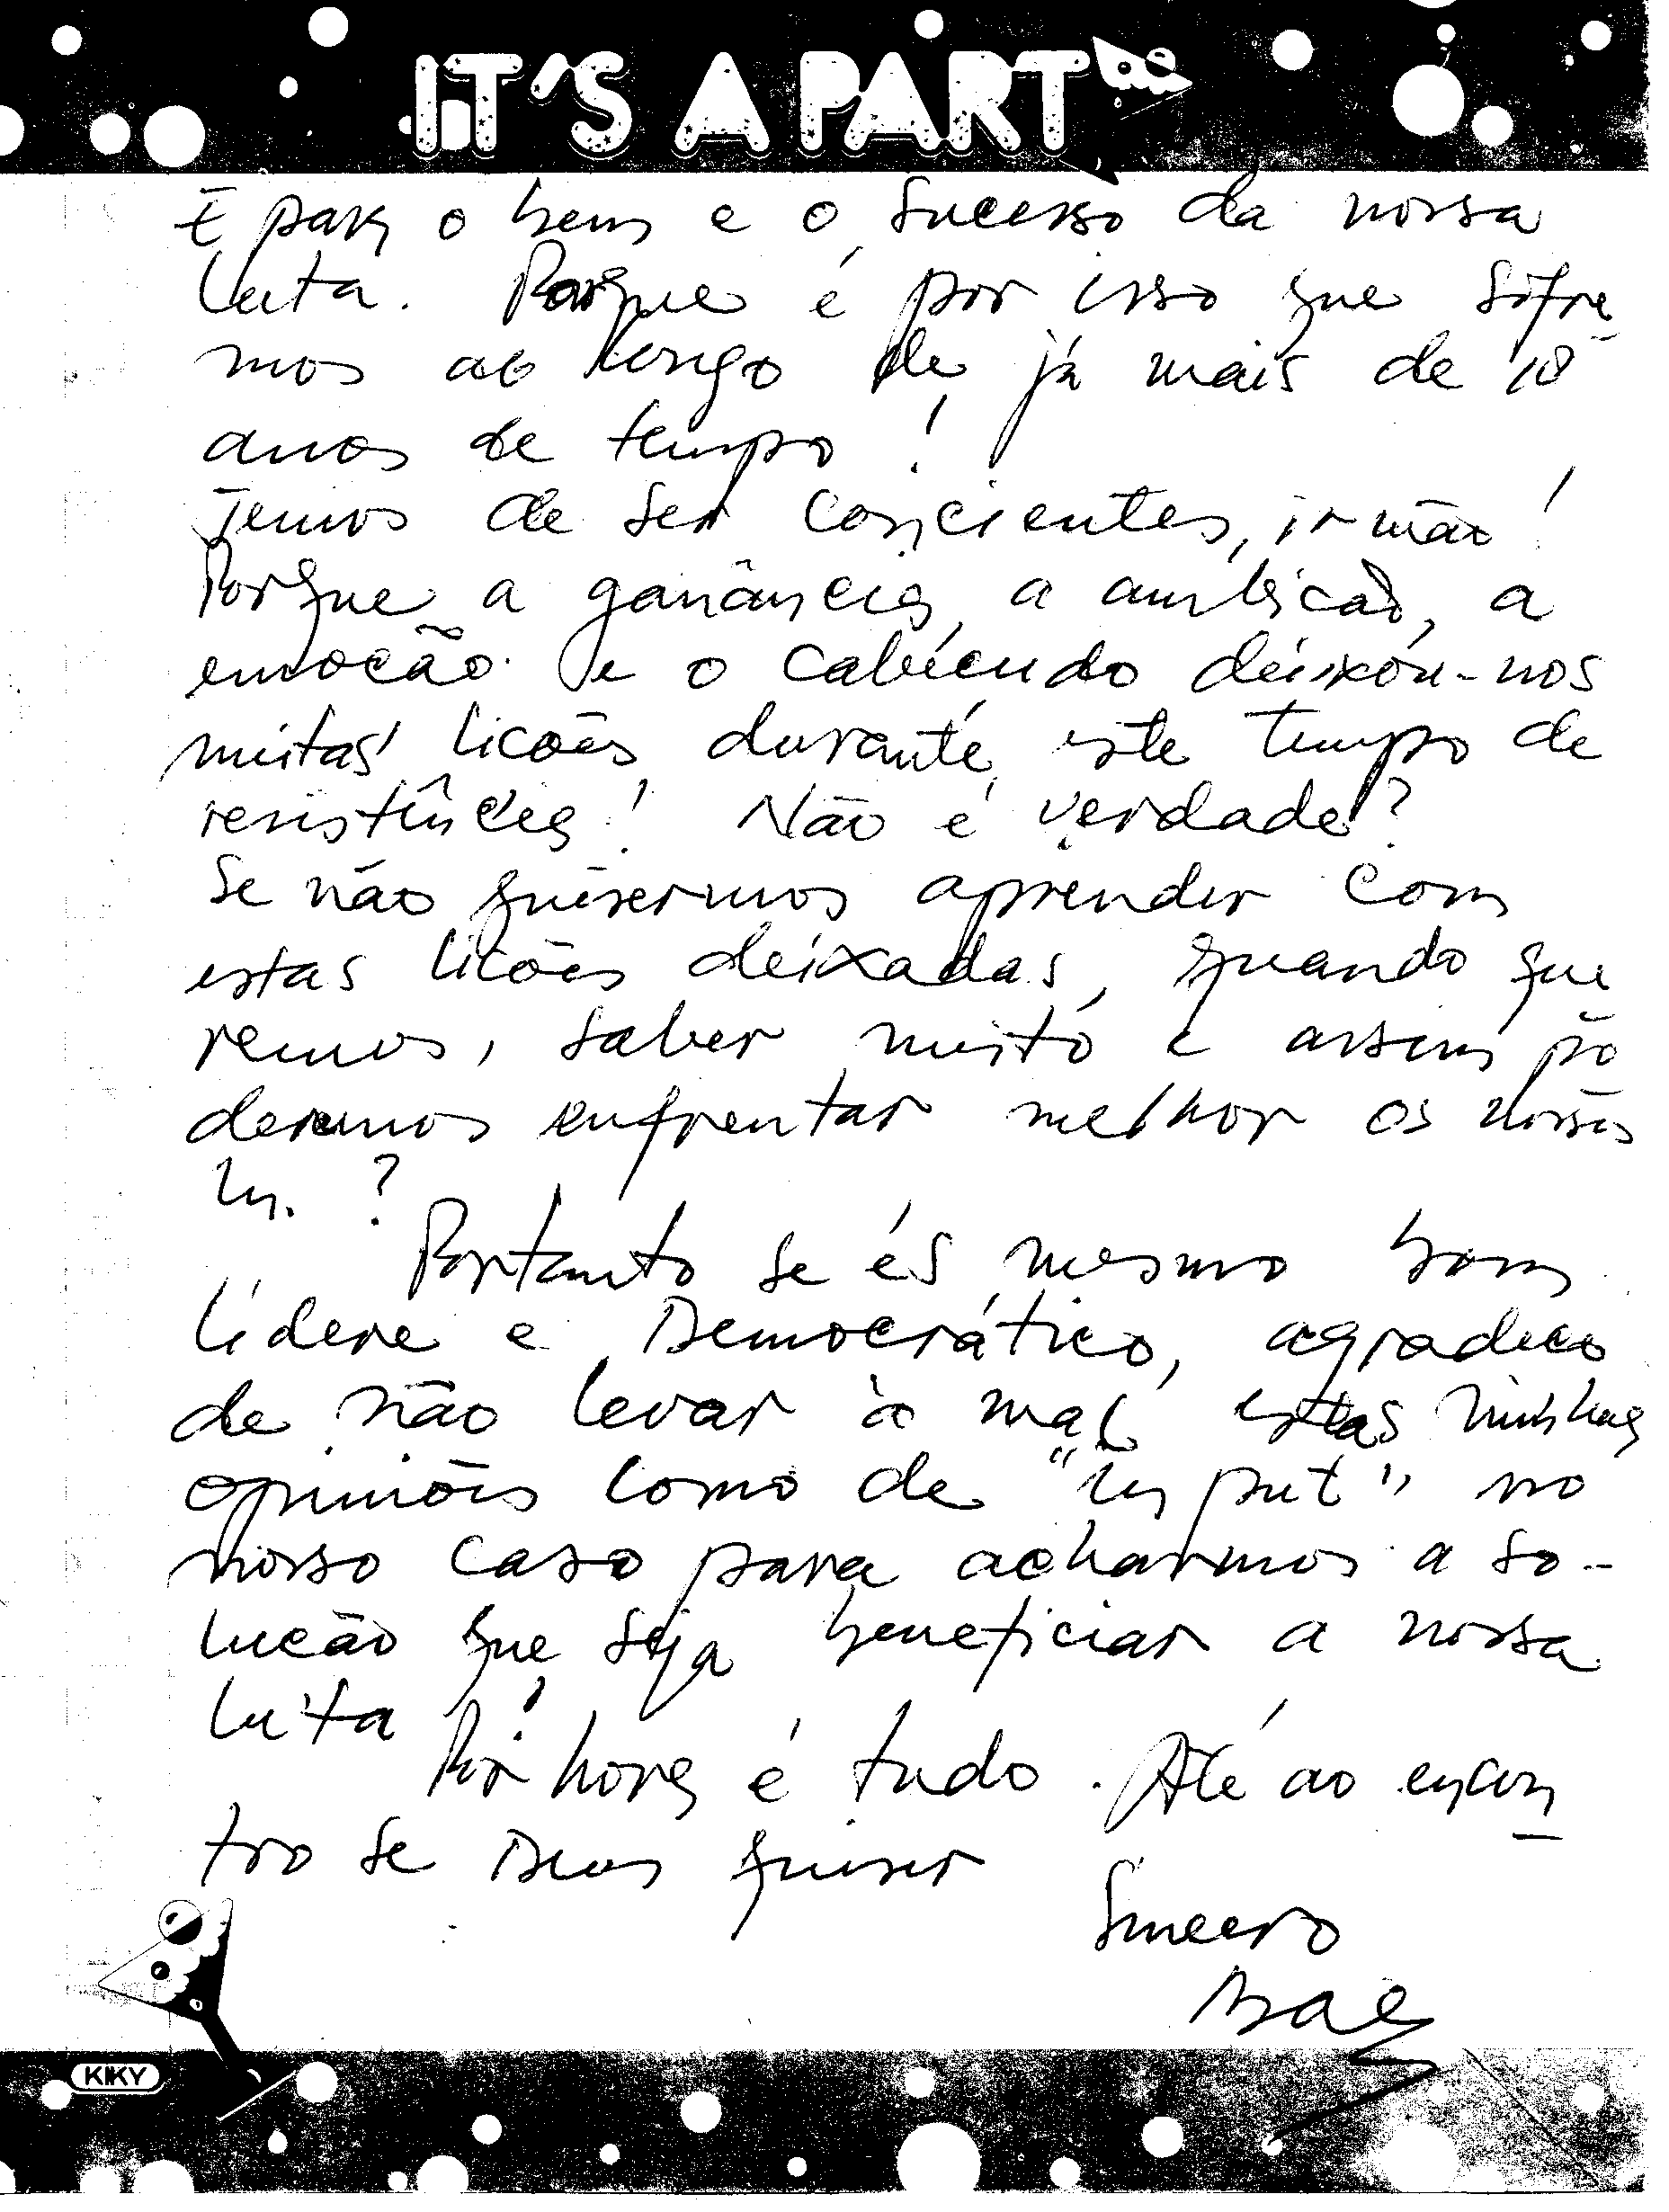 IT'S A PART
E para o bem e o sucesso da nossa
luta. Porque é por isso que sofre-
mos ao longo de já mais de 18
anos de tempo!
Temos de ser conscientes, irmão!
Porque a ganância, a ambicão, a
emocão e o deixou-nos
muitas licões durante este tempo de
resistência! Não é verdade?
Se não quisermos aprender com
estas licões deixadas, quando que
remos, saber muito e assim po
deremos enfrentar melhor os nossos
In. ?
Portanto se és mesmo bom
lídere e Democrático, agradeco
de não levar à mal estas minhas
opiniões como de "In put" no
nosso caso para acharmos a so-
lucão que seja beneficiar a nossa
luta
Por hora é tudo. Até ao encon
tro se Deus quiser
Sincero
KIKY